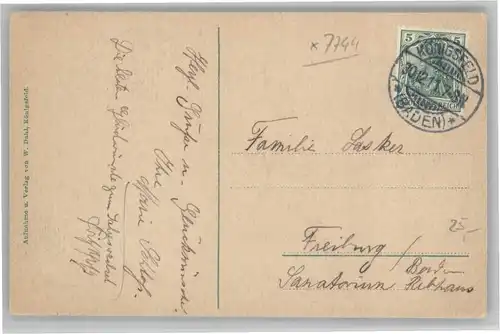 x 7744
5 5
KÖNIGSFELD
30.12.
(BADEN)
Familie Lasker
Freiburg / Baden
Sanatorium Rebhaus
25,-
Herzl. Grüße u. Glückwünsche
Ihre
Marie
Die besten Glückwünsche zum Jahreswechsel
Aufnahme u. Verlag von W. Dahl, Königsfeld.